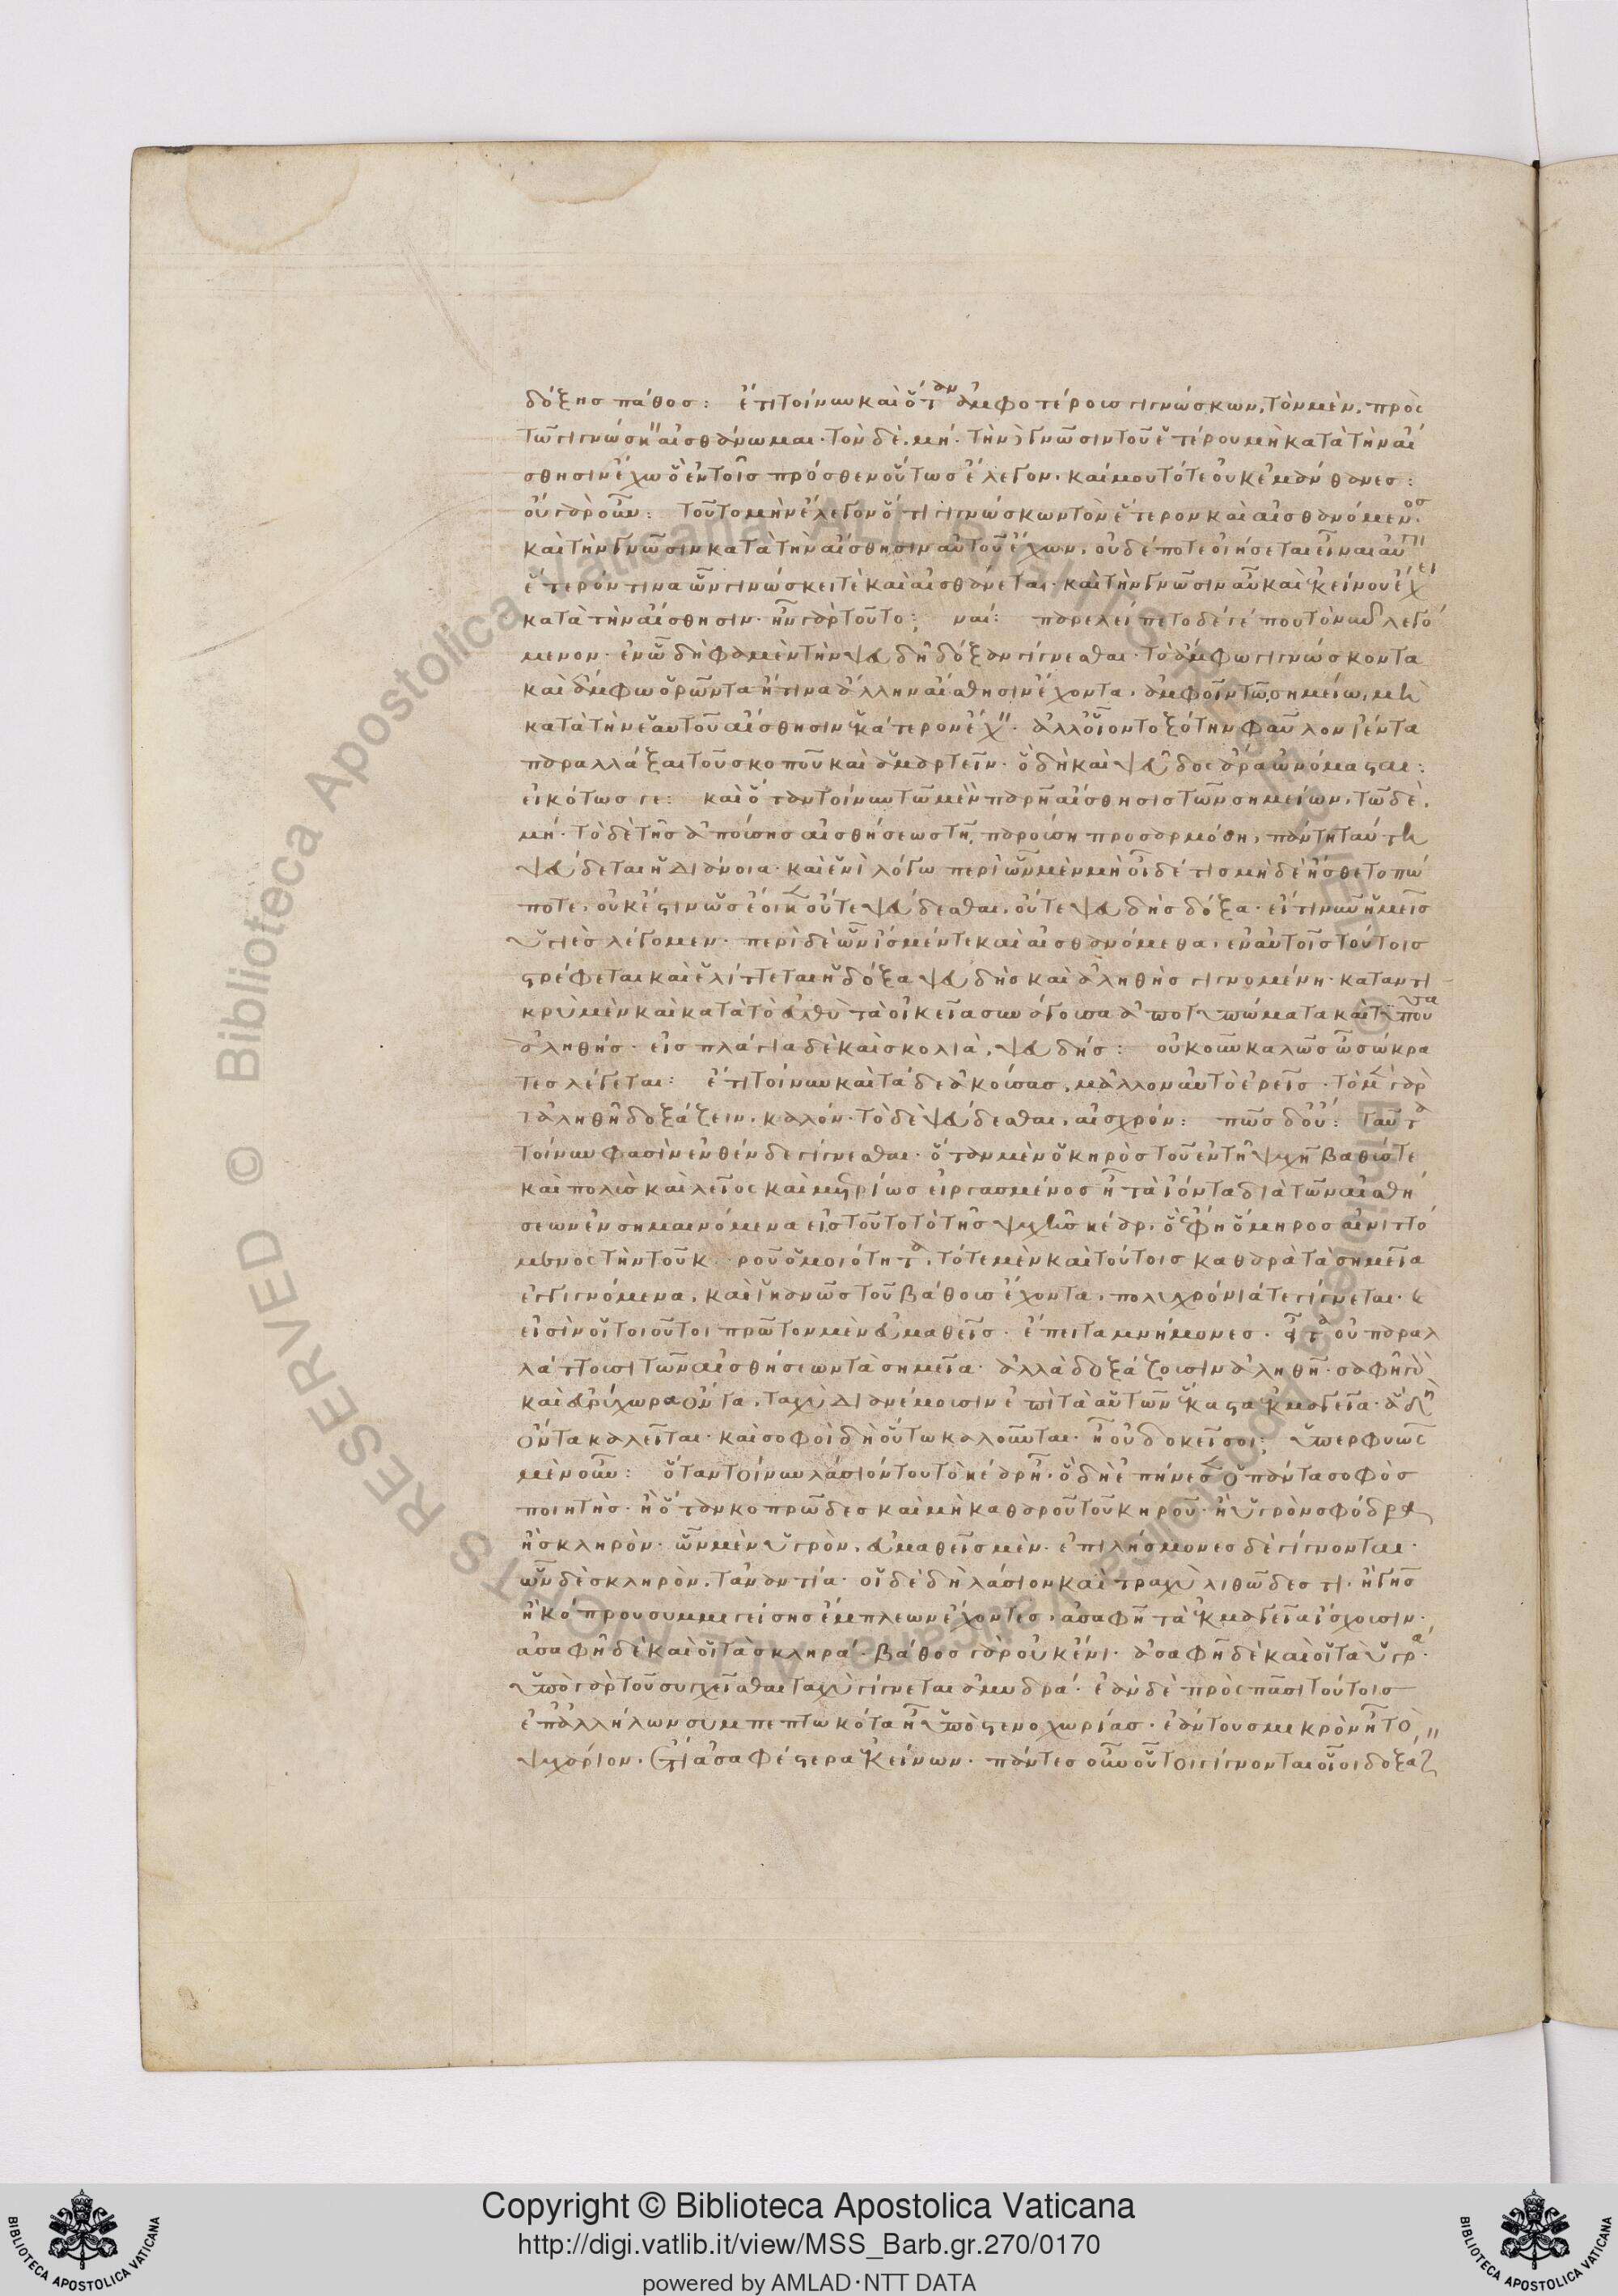 δόξης πάθος: ἔτι τοίνυν καὶ ὅταν ἀμφοτέρους γιγνώσκων, τὸν μὲν, πρὸς
τῶ γιγνώσκειν αἰσθάνωμαι· τὸν δὲ, μή· τὴν γνῶσιν τοῦ ἑτέρου μὴ κατὰ τὴν αἴ
σθησιν ἔχω ὃ ἐν τοῖς πρόσθεν οὕτως ἔλεγον, καί μου τότε οὐκ ἐμάνθανες:
οὐ γὰρ οὖν: τοῦτο μὴν ἔλεγον ὅτι γιγνώσκων τὸν ἕτερον καὶ αἰσθανόμενος.
καὶ τὴν γνῶσιν κατὰ τὴν αἴσθησιν αὐτοῦ ἔχων, οὐδέποτε οἰήσεται εἶναι αὐτὸν
ἕτερόν τινα ὧν γιγνώσκει τὲ καὶ αἰσθάνεται· καὶ τὴν γνῶσιν αὖ καὶ κείνου ἔχει
κατὰ τὴν αἴσθησιν· ἦν γὰρ τοῦτο; ναί: παρελείπετο δέ γέ που τὸ νῦν λεγό
μενον· ἐν ὧ δή φαμεν τὴν ψευδῆ δόξαν γίγνεσθαι· τὸ ἄμφω γιγνώσκοντα
καὶ ἄμφω ὁρῶντα ἤ τινα ἄλλην αἴσθησιν ἔχοντα, ἀμφοῖν τὼ σημείω, μὴ
κατὰ τὴν ἑαυτοῦ αἴσθησιν ἑκάτερον ἔχειν· ἀλλ' οἷον τοξότην φαῦλον ἱέντα
παραλλάξαι τοῦ σκοποῦ καὶ ἁμαρτεῖν· ὃ δὴ καὶ ψεῦδος ἄρα ὠνόμασται:
εἰκότως γε: καὶ ὅταν τοίνυν τῶ μὲν παρῆ αἴσθησις τῶν σημείων, τῶ δὲ,
μή· τὸ δὲ τῆς ἀπούσης αἰσθήσεως τῆ παρούση προσαρμόση, πάντη ταύτη
ψεύδεται ἡ διάνοια· καὶ ἑνὶ λόγω περὶ ὧν μὲν μὴ οἶδέ τις μηδὲ ἤσθετο πώ
ποτε, οὐκ ἔστιν ὡς ἔοικεν οὔτε ψεύδεσθαι, οὔτε ψευδὴς δόξα· εἴ τι νῦν ἡμεῖς
ὑγιὲς λέγομεν· περὶ δὲ ὧν ἴσμέν τε καὶ αἰσθανόμεθα, ἐν αὐτοῖς τούτοις
στρέφεται καὶ ἑλίττεται ἡ δόξα ψευδὴς καὶ ἀληθὴς γιγνομένη· καταντι
κρὺ μὲν καὶ κατὰ τὸ εὐθὺ τὰ οἰκεῖα συνάγουσα ἀποτυπώματα καὶ τύπους
ἀληθής· εἰς πλάγια δὲ καὶ σκολιὰ, ψευδής: οὐκοῦν καλῶς ὦ σώκρα
τες λέγεται: ἔτι τοίνυν καὶ τάδε ἀκούσας, μᾶλλον αὐτὸ ἐρεῖς· τὸ μὲν γὰρ
τἀληθῆ δοξάζειν, καλόν· τὸ δὲ ψεύδεσθαι, αἰσχρόν: πῶς δ' οὔ: ταῦτα
τοίνυν φασὶν ἐνθένδε γίγνεσθαι· ὅταν μὲν ὁ κηρὸς τοῦ ἐν τῆ ψυχῆ βαθύς τε
καὶ πολὺς καὶ λεῖος καὶ μετρίως εἰργασμένος ἦ τὰ ἰόντα διὰ τῶν αἰσθή
σεων ἐνσημαινόμενα εἰς τοῦτο τὸ τῆς ψυχῆς κέαρ, ὃ ἔφη ὅμηρος αἰνιττό
μενος τὴν τοῦ κ ροῦ ὁμοιότητα, τότε μὲν καὶ τούτοις καθαρὰ τὰ σημεῖα
ἐγγιγνόμενα, καὶ ἱκανῶς τοῦ βάθους ἔχοντα, πολυχρόνιά τε γίγνεται· καὶ
εἰσὶν οἱ τοιοῦτοι πρῶτον μὲν εὐμαθεῖς· ἔπειτα μνήμονες· εἶτα οὐ παραλ
λάττουσι τῶν αἰσθήσεων τὰ σημεῖα· ἀλλὰ δοξάζουσιν ἀληθῆ· σαφῆ γὰρ
καὶ εὐρύχωρα ὄντα, ταχὺ διανέμουσιν ἐπὶ τὰ αὑτῶν ἕκαστα ἐκμαγεῖα· ἃ δὴ
ὄντα καλεῖται· καὶ σοφοὶ δὴ οὗτοι καλοῦνται· ἢ οὐ δοκεῖ σοι; ὑπερφυῶς
μὲν οὖν: ὅταν τοίνυν λάσιόν του τὸ κέαρ ἦ· ὃ δὴ ἐπήνεσεν ὁ πάντα σοφὸς
ποιητής· ἢ ὅταν κοπρῶδες καὶ μὴ καθαροῦ τοῦ κηροῦ· ἢ ὑγρὸν σφόδρα
ἢ σκληρὸν· ὧν μὲν ὑγρὸν, εὐμαθεῖς μὲν· ἐπιλήσμονες δὲ γίγνονται·
ὧν δὲ σκληρὸν, τἀναντία· οἱ δὲ δὴ λάσιον καὶ τραχὺ λιθῶδές τι· ἢ γῆς
ἢ κόπρου συμμιγείσης ἔμπλεων ἔχοντες, ἀσαφῆ τὰ ἐκμαγεῖα ἴσχουσιν·
ἀσαφῆ δὲ καὶ οἱ τὰ σκληρά· βάθος γὰρ οὐκ ἔνι· ἀσαφῆ δὲ καὶ οἱ τὰ ὑγρά·
ὑπὸ γὰρ τοῦ συγχεῖσθαι ταχὺ γίγνεται ἀμυδρά· ἐὰν δὲ πρὸς πᾶσι τούτοις
ἐπ' ἀλλήλων συμπεπτωκότα ἦ ὑπὸ στενοχωρίας· ἐάν του σμικρὸν ἦ τὸ
ψυχάριον, ἔτι ἀσαφέστερα ἐκείνων· πάντες οὖν οὗτοι γίγνονται οἷοι δοξάζειν
Copyright © Biblioteca Apostolica Vaticana
http://digi.vatlib.it/view/MSS_Barb.gr.270/0170
powered by AMLAD·NTT DATA